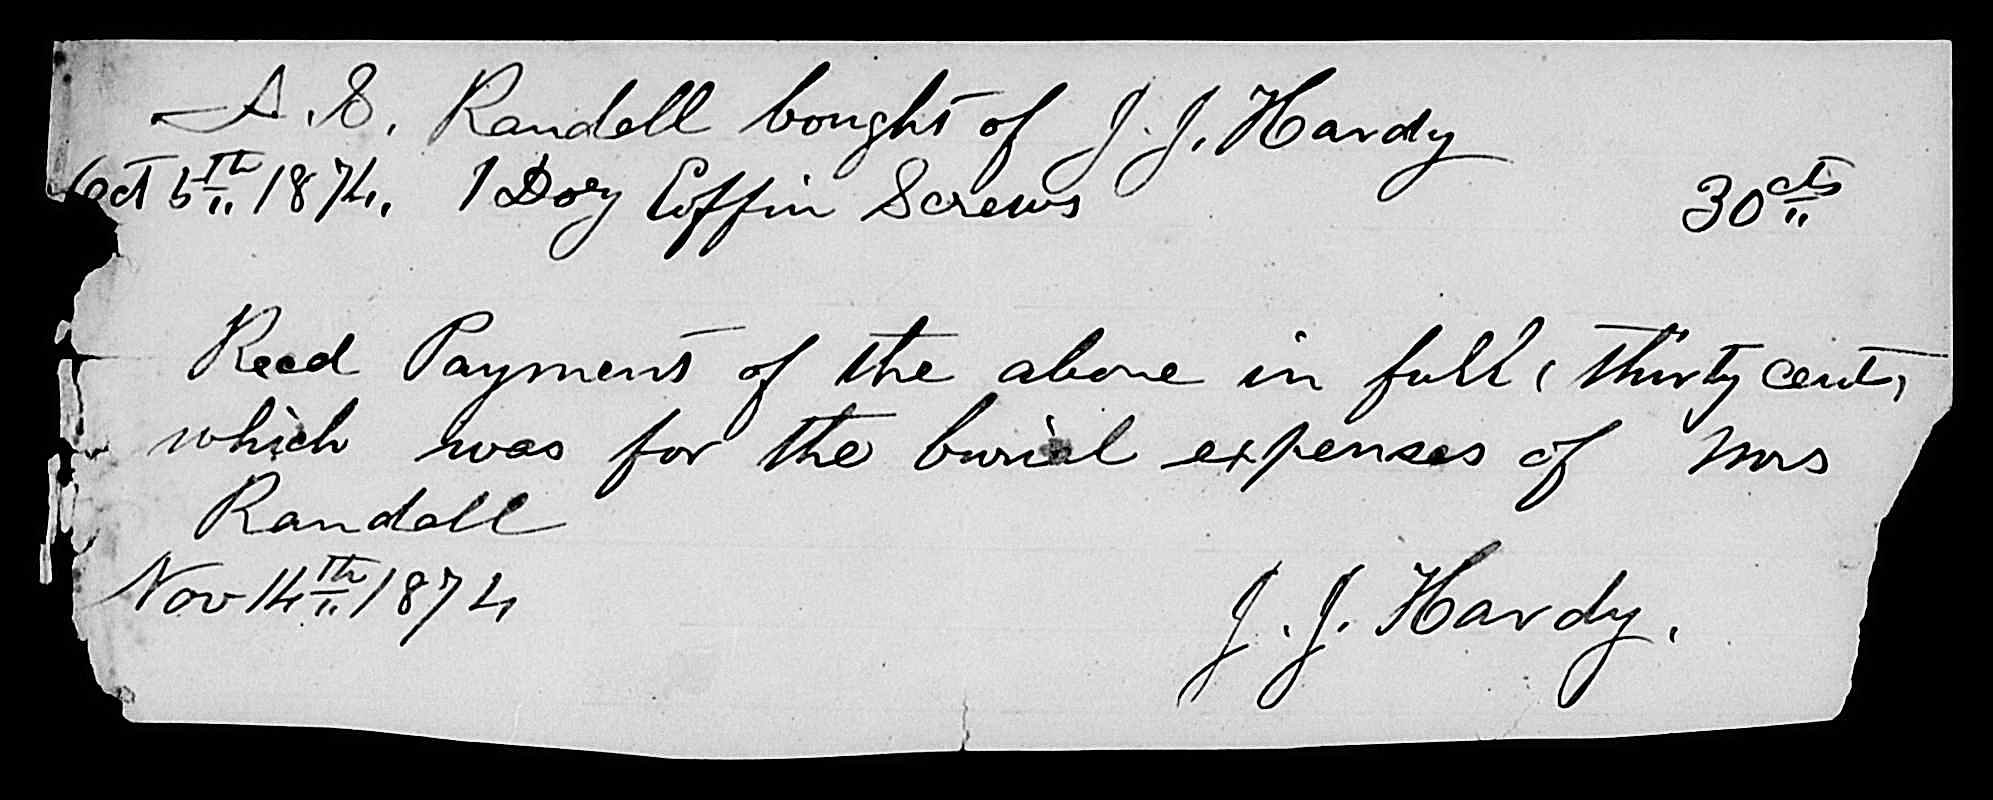 A. S. Randell bought of J. J. Hardy
Oct 5th 1874. 1 Doz Coffin Screws 30cts
Recd Payment of the above in full, thirty cent,
which was for the burial expenses of Mrs
Randell
Nov 14th 1874
J. J. Hardy.